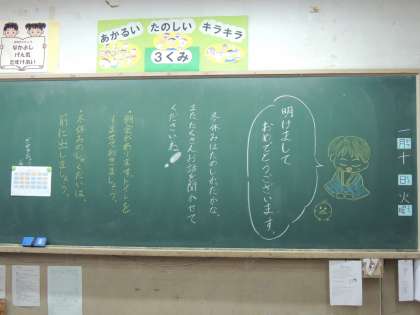 あかるい
たのしい
キラキラ
3くみ
なかよし
げん気
一月十日火
明けまして
おめでとうございます。
冬休みはたのしかったかな。
またたくさんお話を聞かせて
くださいね
・朝会があります。トイレを
すませておきましょう。
・冬休みのしゅくだいは、
前に出しましょう。